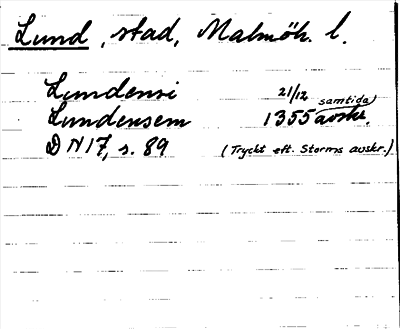 Lund, stad, Malmöh. l.
Lundensi 21/12
Lundensem 1355 samtida avskr.
DN 17, s. 89 (Tryckt eft. Storms avskr.)